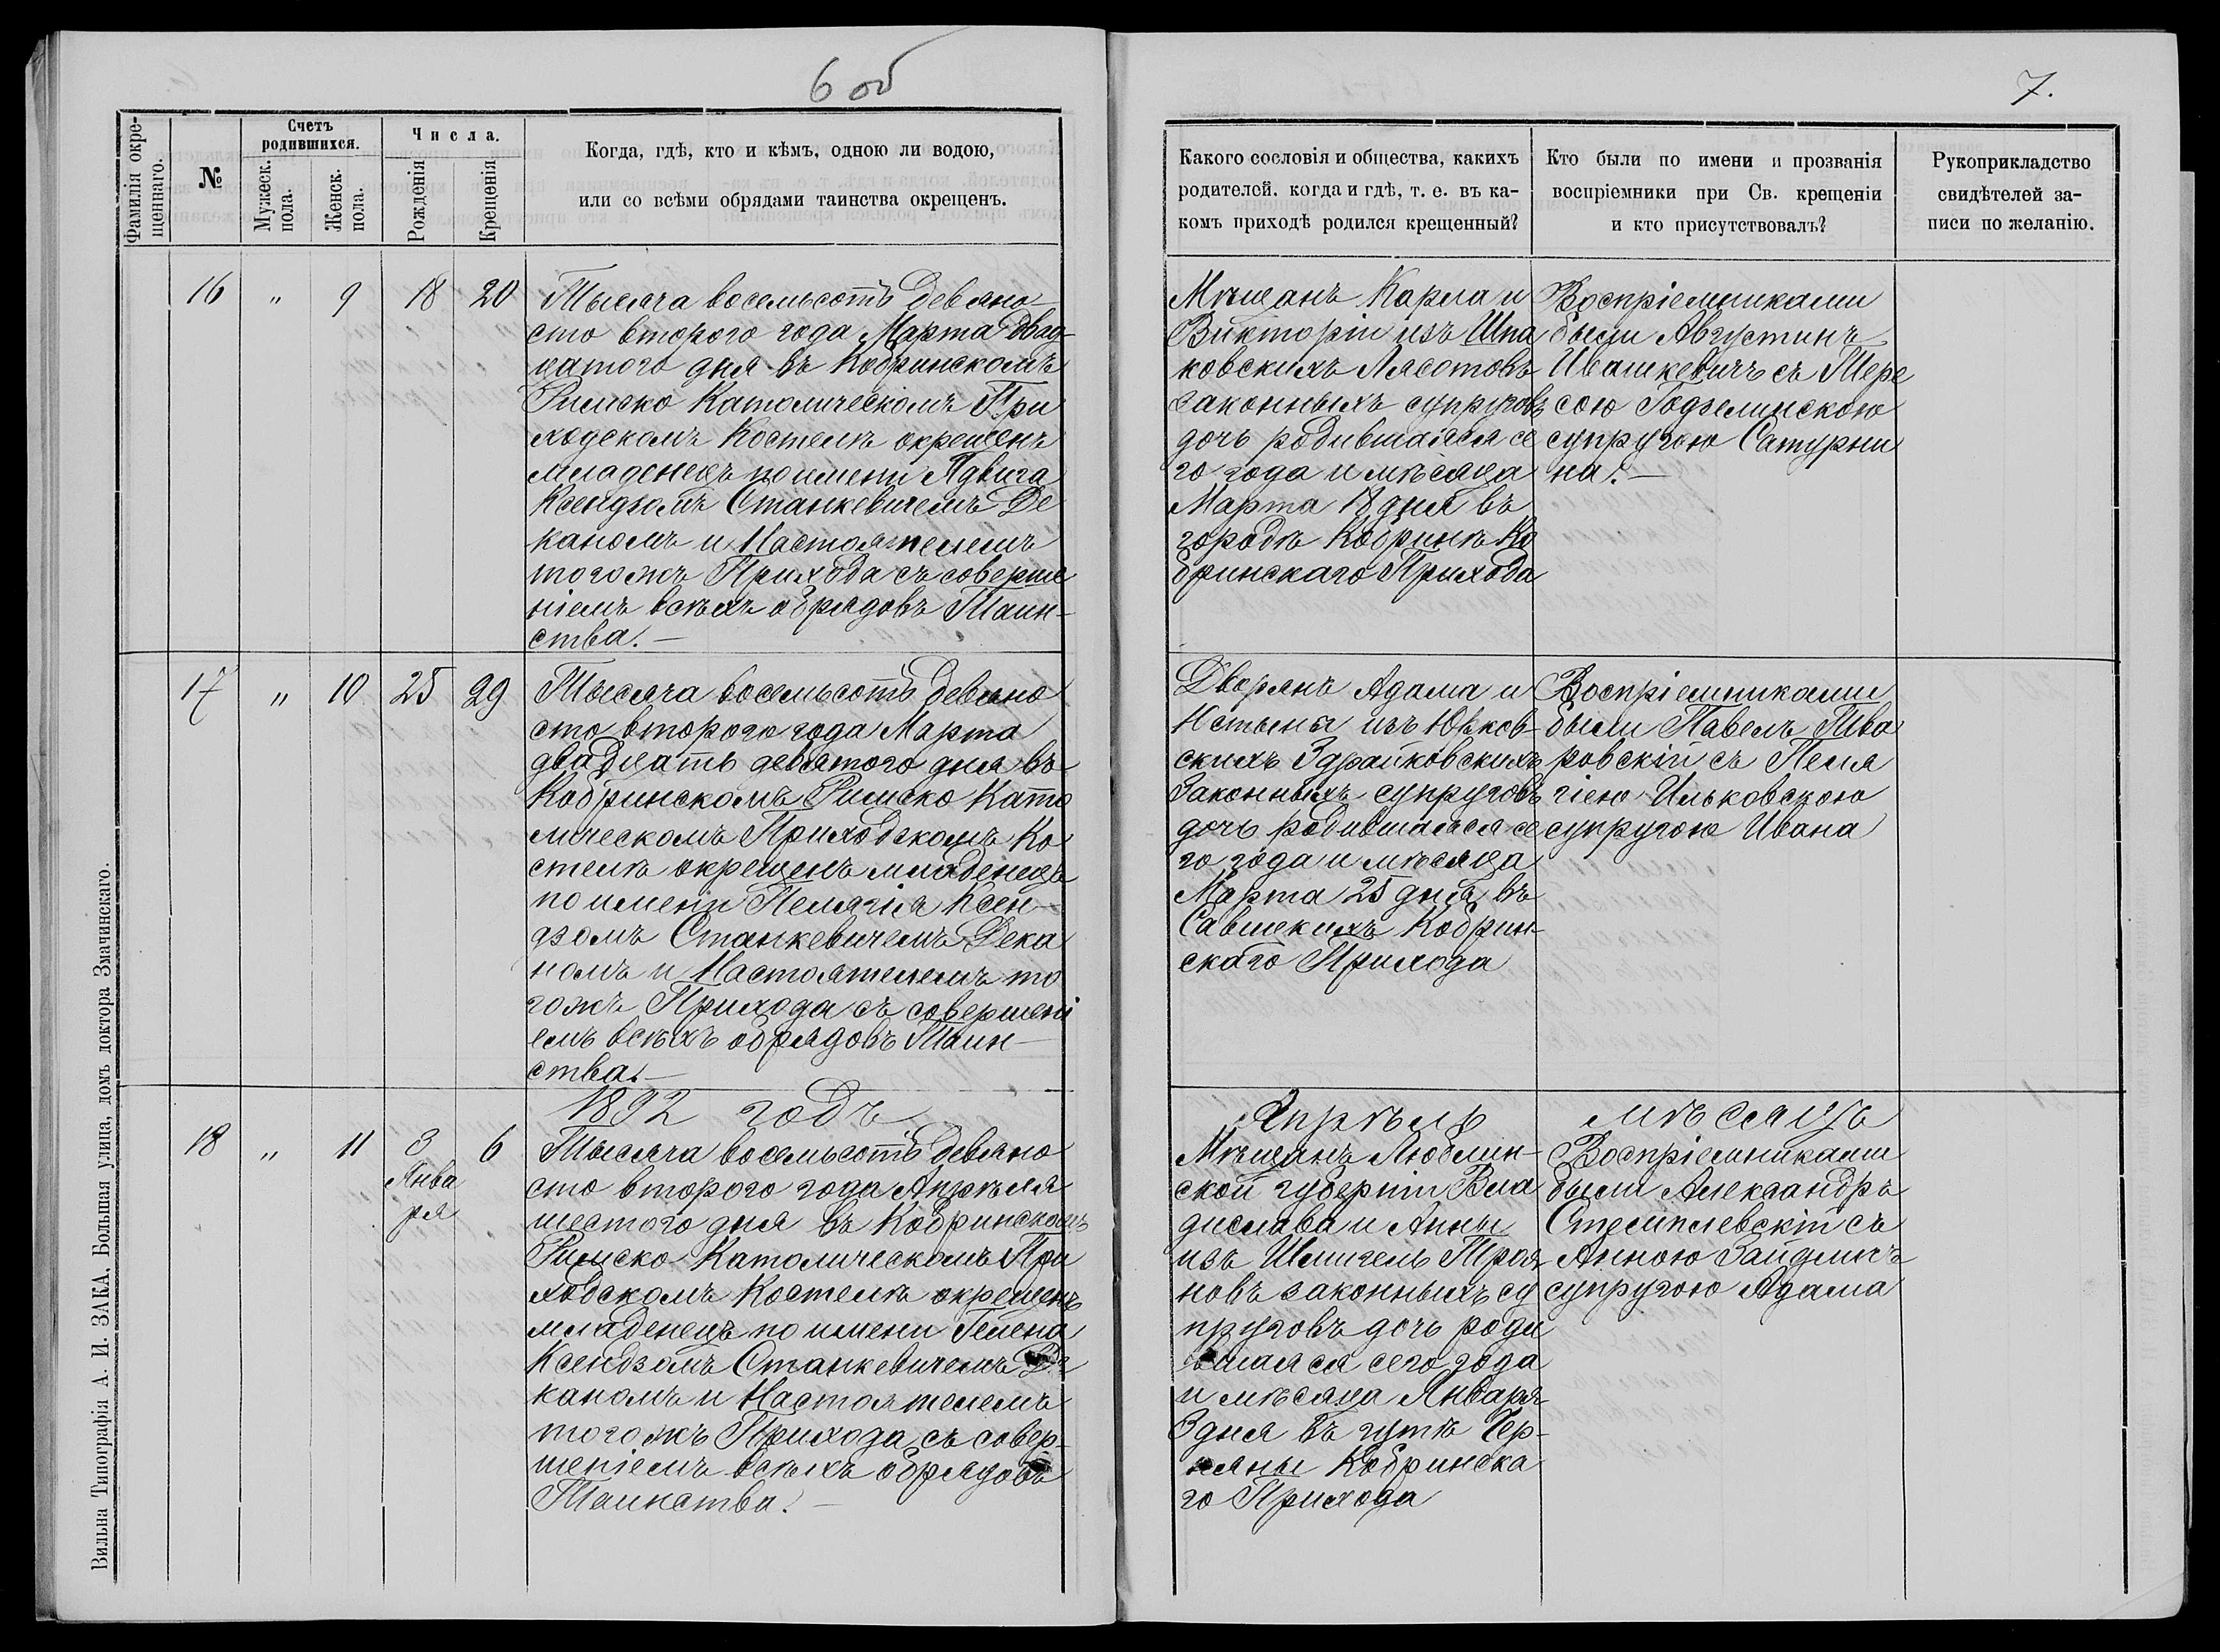 6 об
Фамилія окре-
щеннаго.
№
Счетъ
родившихся.
Мужеск.
пола.
Женск.
пола.
Числа.
Рожденія
Крещенія
Когда, гдѣ, кто и кѣмъ, одною ли водою,
или со всѣми обрядами таинства окрещенъ.
16 " 9 18 20
Тысяча восемьсотъ девяно
сто второго года Марта двад-
цатого дня въ Кобринскомъ
Римско Католическомъ При
ходскомъ Костелѣ окрещенъ
младенецъ по имени Ядвига
Ксендзомъ Станкевичемъ Де
каномъ и Настоятелемъ
тогожъ Прихода съ соверше
ніемъ всѣхъ обрядовъ Таин-
ства.—
17 " 10 25 29
Тысяча восемьсотъ девяно
сто второго года Марта
двадцать девятого дня въ
Кобринскомъ Римско Като
лическомъ Приходскомъ Ко
стелѣ окрещенъ младенецъ
по имени Пелагія Ксен-
дзомъ Станкевичемъ Дека
номъ и Настоятелемъ то
гожъ Прихода съ совершені
емъ всѣхъ обрядовъ Таин-
ства.—
1892 годъ
18 " 11 3 6
Янва
ря
Тысяча восемьсотъ девяно
сто второго года Апрѣля
шестого дня въ Кобринскомъ
Римско Католическомъ При
ходскомъ Костелѣ окрещенъ
младенецъ по имени Гелена
Ксендзомъ Станкевичемъ Де
каномъ и Настоятелемъ
тогожъ Прихода съ совер-
шеніемъ всѣхъ обрядовъ
Таинства.—
Вильна Типографія А. И. ЗАКА, Большая улица, домъ доктора Змачинскаго.
7.
Какого сословія и общества, какихъ
родителей, когда и гдѣ, т. е. въ ка-
комъ приходѣ родился крещенный?
Кто были по имени и прозванія
воспріемники при Св. крещеніи
и кто присутствовалъ?
Рукоприкладство
свидѣтелей за-
писи по желанію.
Мѣщанъ Карла и
Викторіи изъ Шпа
ковскихъ Лясотовъ
законныхъ супруговъ
дочь родившаяся се
го года и мѣсяца
Марта 18 дня въ
городѣ Кобринѣ Ко
бринскаго Прихода
Воспріемниками
были Августинъ
Ивашкевичъ съ Тере
сою Годзелинскою
супругою Сатурни
на.—
Дворянъ Адама и
Юстыны изъ
скихъ Здрайковскихъ
Законныхъ супруговъ
дочь родившаяся се
го года и мѣсяца
Марта 25 дня въ
Кобрин-
скаго Прихода
Воспріемниками
были Павелъ Тва
ровскій съ Пела
гіею Ильковскою
супругою Ивана
Апрѣль мѣсяцъ
Мѣщанъ Люблин-
ской губерніи Вла
дислава и Анны
изъ Шмигель Троя
новъ законныхъ су
пруговъ дочь роди
вшаяся сего года
и мѣсяца Января
3 дня въ гутѣ Чер-
няны Кобринска
го Прихода
Воспріемниками
были Александръ
Стемплевскій съ
Анною
супругою Адама